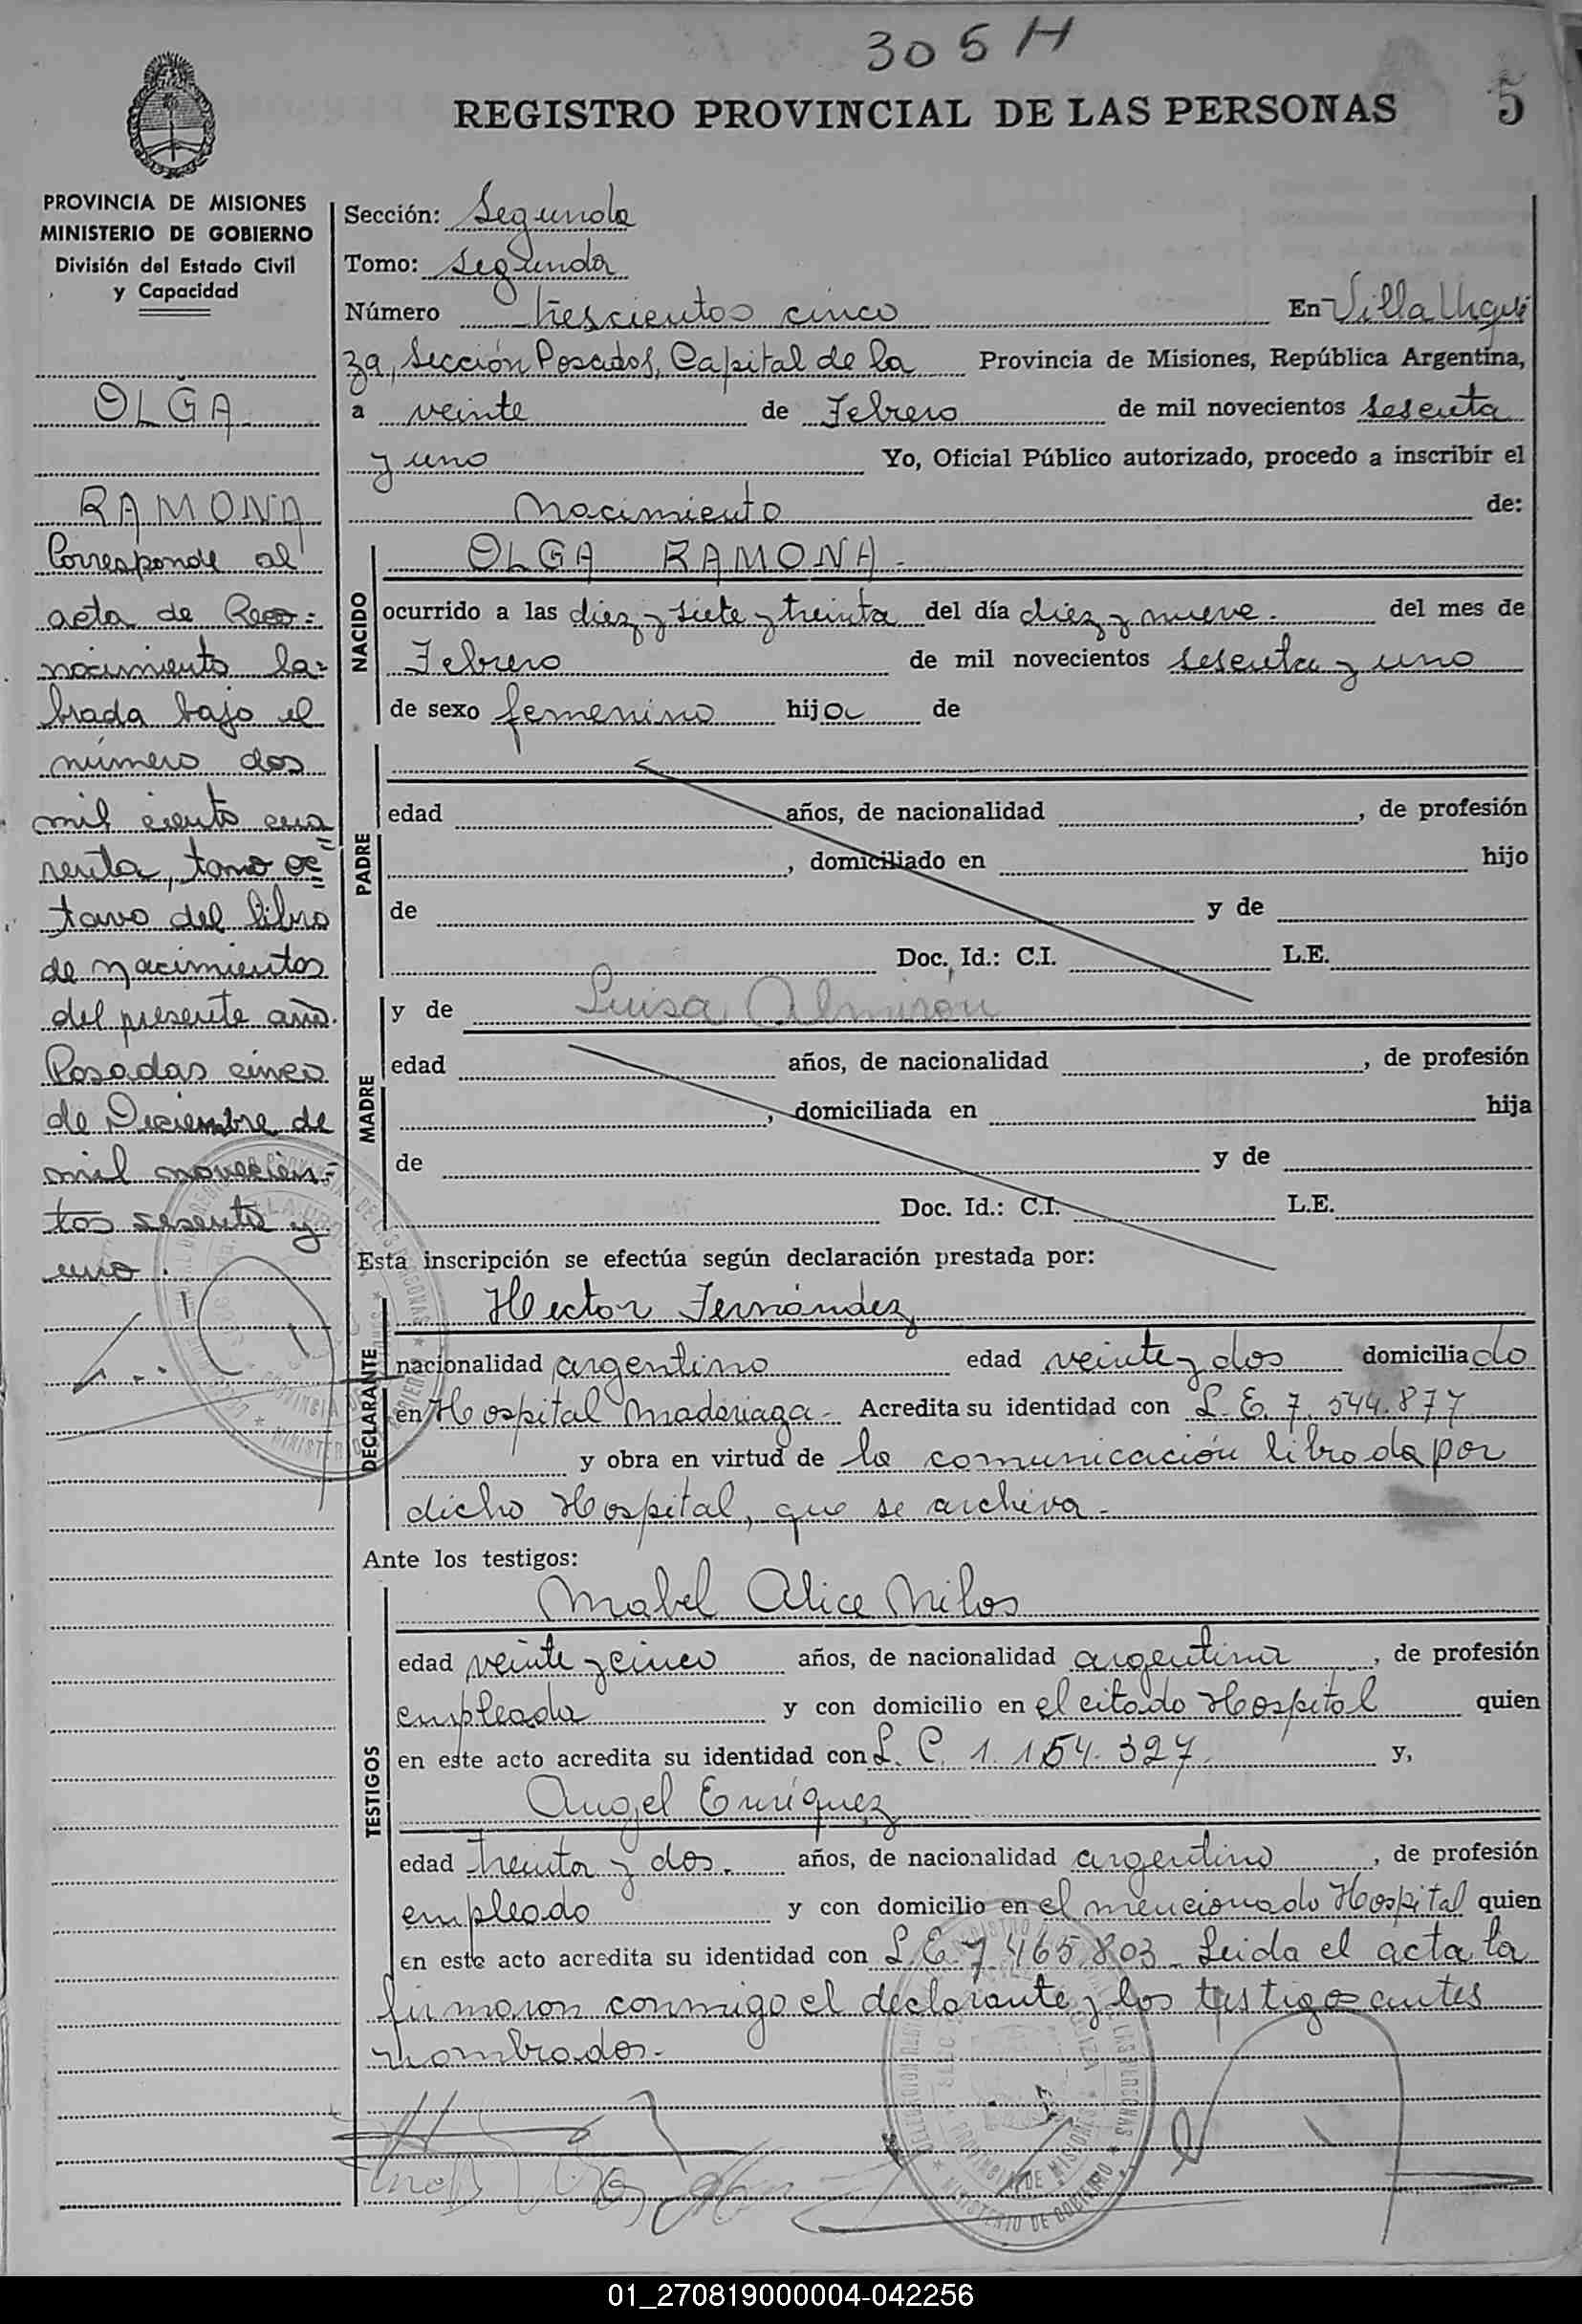 305 H
REGISTRO PROVINCIAL DE LAS PERSONAS 5
PROVINCIA DE MISIONES
MINISTERIO DE GOBIERNO
División del Estado Civil
y Capacidad
OLGA
RAMONA
Corresponde al
acta de Reco=
nocimiento la=
brada bajo el
número dos
mil ciento cua
renta, tomo oc
tavo del libro
de nacimientos
del presente año.
Posadas cinco
de Diciembre de
mil novecien=
tos sesenta y
uno.
Sección: Segunda
Tomo: Segunda
Número trescientos cinco En Villa Urqui
za, Sección Posadas, Capital de la Provincia de Misiones, República Argentina,
a veinte de Febrero de mil novecientos sesenta
y uno Yo, Oficial Público autorizado, procedo a inscribir el
Nacimiento de:
NACIDO
OLGA RAMONA.
ocurrido a las diez y siete y treinta del día diez y nueve. del mes de
Febrero de mil novecientos sesenta y uno
de sexo femenino hija de
PADRE
edad años, de nacionalidad , de profesión
, domiciliado en hijo
de y de
Doc. Id.: C.I. L.E.
MADRE
y de Luisa Almirón
edad años, de nacionalidad , de profesión
, domiciliada en hija
de y de
Doc. Id.: C.I. L.E.
Esta inscripción se efectúa según declaración prestada por:
DECLARANTE
Hector Fernández
nacionalidad argentino edad veinte y dos domiciliado
en Hospital Madariaga- Acredita su identidad con L. E. 7. 544.877
y obra en virtud de la comunicación librada por
dicho Hospital, que se archiva-
Ante los testigos:
TESTIGOS
Mabel Alice Milos
edad veinte y cinco años, de nacionalidad argentina , de profesión
empleada y con domicilio en el citado Hospital quien
en este acto acredita su identidad con L. C. 1.154.327 y,
Angel Enríquez
edad treinta y dos. años, de nacionalidad argentino , de profesión
empleado y con domicilio en el mencionado Hospital quien
en este acto acredita su identidad con L.E. 7.465.803. Leida el acta la
firmaron conmigo el declarante y los testigos antes
nombrados.-
01_270819000004-042256